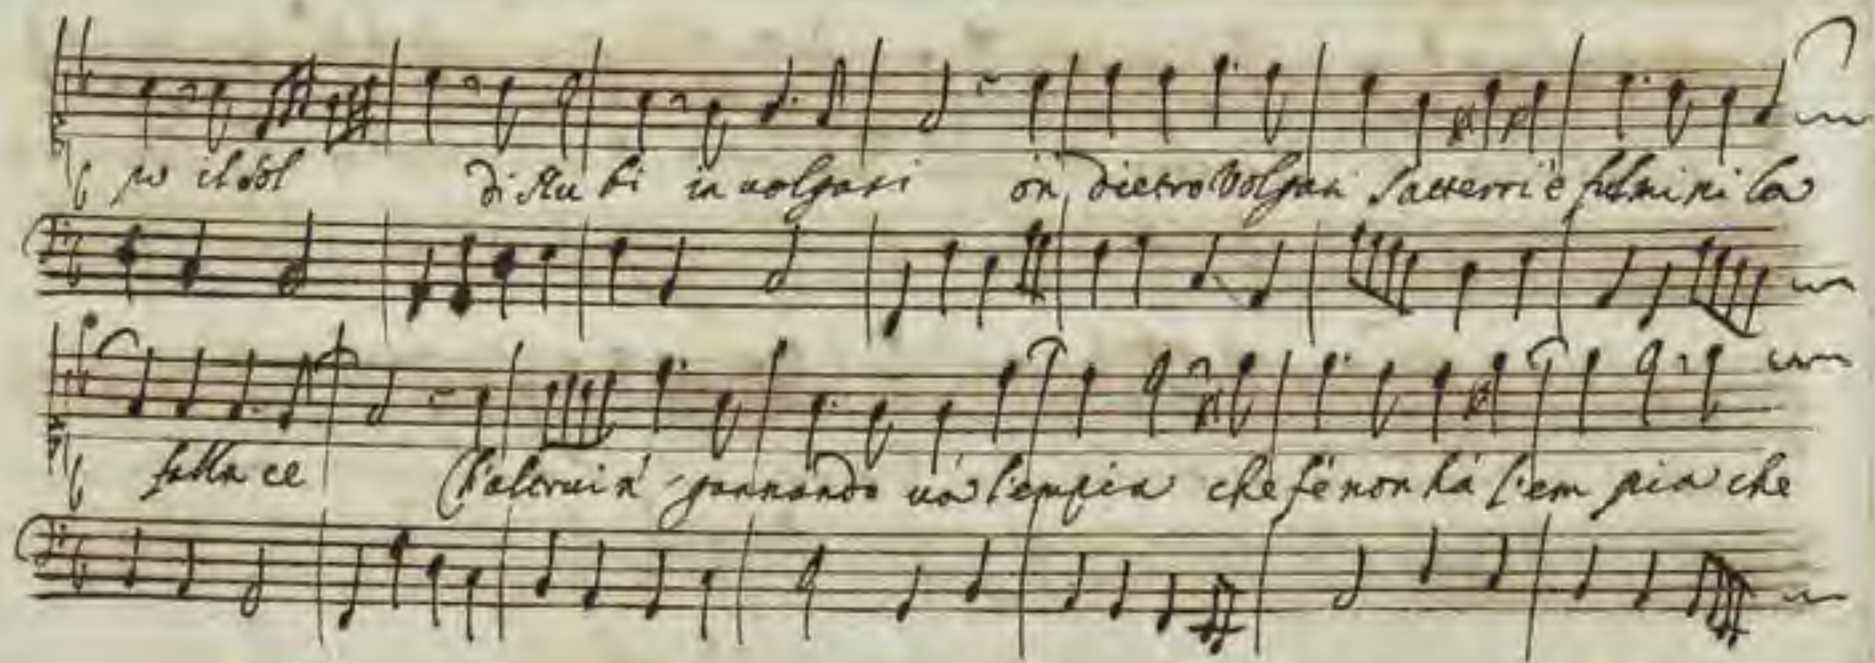 il sol di Nu bi in volgasi on dietro Volgasi s'atterri è fulmini la
fallace Ch'altrui n' -gannando và l'empia che fé non hà l'em pia che